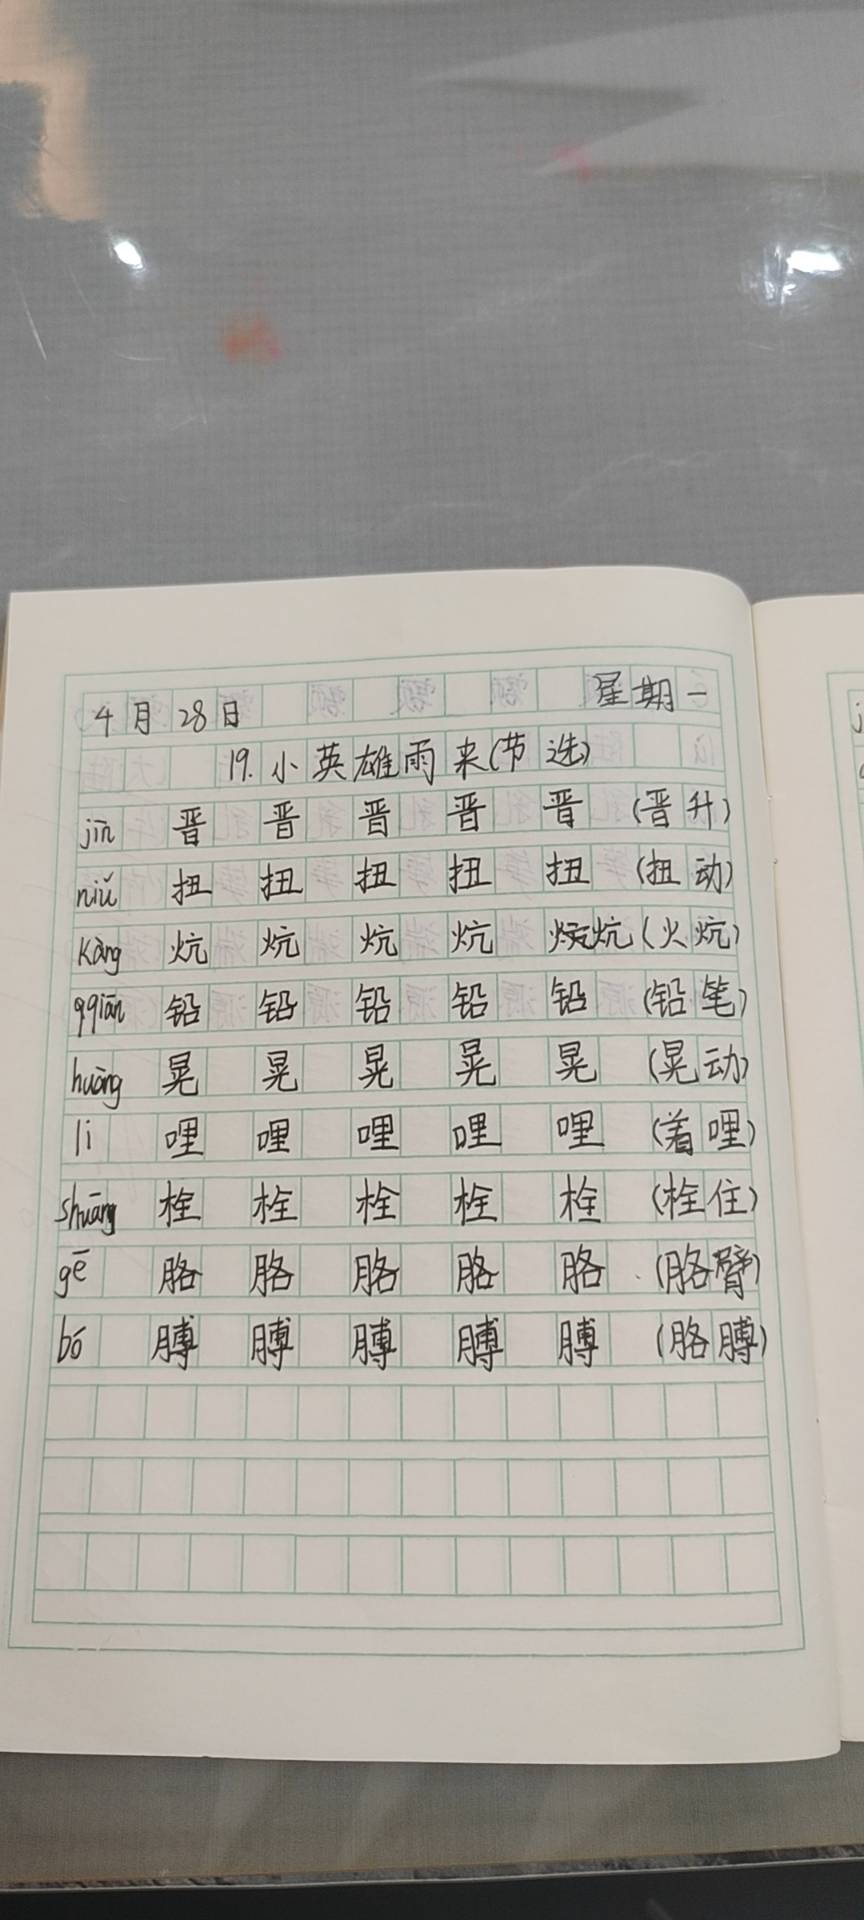 4月28日 星期一
19.小英雄雨来(节选)
jīn 晋 晋 晋 晋 晋 (晋升)
niǔ 扭 扭 扭 扭 扭 (扭动)
kàng 炕 炕 炕 炕 炕 (火炕)
qiān 铅 铅 铅 铅 铅 (铅笔)
huàng 晃 晃 晃 晃 晃 (晃动)
li 哩 哩 哩 哩 哩 (着哩)
shuāng 栓 栓 栓 栓 栓 (栓住)
gē 胳 胳 胳 胳 胳 (胳臂)
bó 膊 膊 膊 膊 膊 (胳膊)